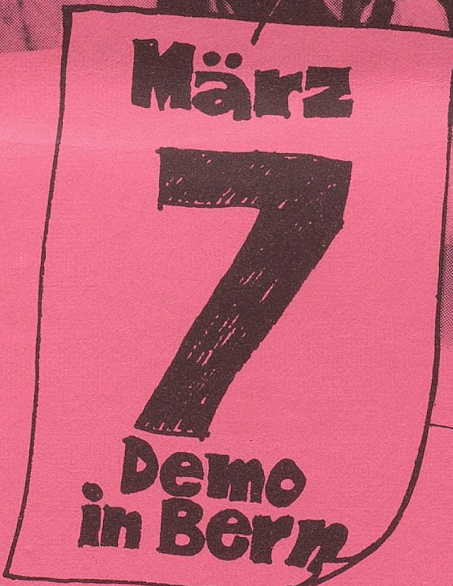 März
7
Demo
in Bern